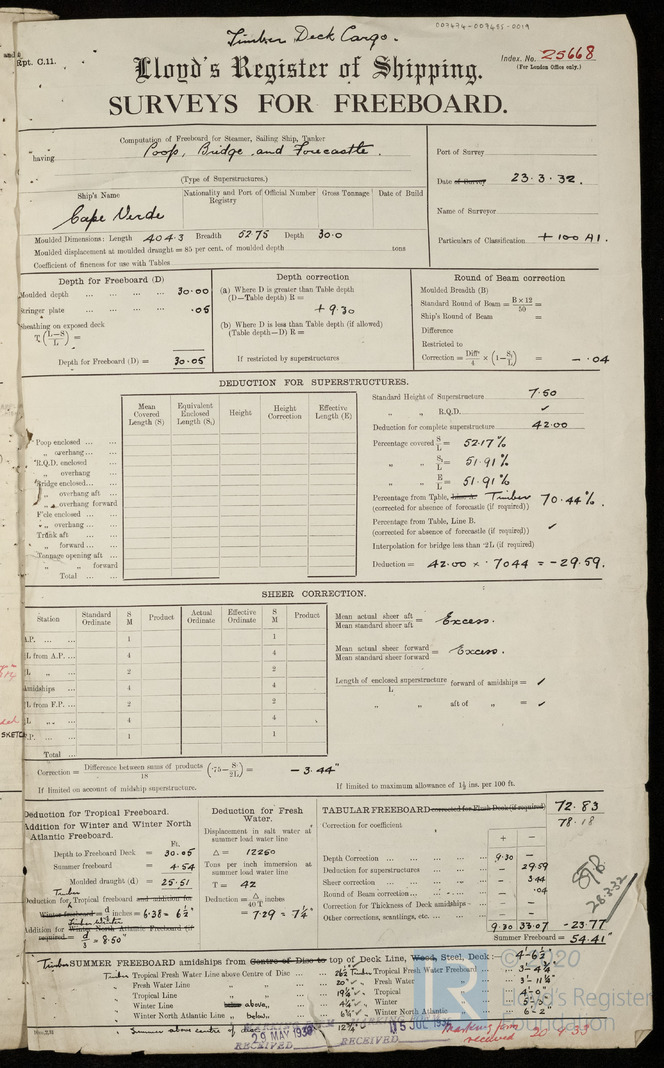 007674-007685-0019
Timber Deck Cargo.
Rpt. C.11.
Lloyd's Register of Shipping.
Index. No. 25668
(For London Office only.)
SURVEYS FOR FREEBOARD.
Computation of Freeboard for Steamer, Sailing Ship, Tanker
having Poop, Bridge and Forecastle.
(Type of Superstructures.)
Port of Survey
Date of Survey 23.3.32.
Name of Surveyor
Particulars of Classification + 100 A1.
Ship's Name
Nationality and Port of Registry
Official Number
Gross Tonnage
Date of Build
Cape Verde
Moulded Dimensions: Length 404.3 Breadth 52.75 Depth 30.0
Moulded displacement at moulded draught = 85 per cent. of moulded depth tons
Coefficient of fineness for use with Tables
Depth for Freeboard (D)
Moulded depth ... ... ... ... 30.00
Stringer plate ... ... ... ... .05
Sheathing on exposed deck
T (L-S/L) =
Depth for Freeboard (D) = 30.05
Depth correction
(a) Where D is greater than Table depth
(D—Table depth) R =
+ 9.30
(b) Where D is less than Table depth (if allowed)
(Table depth—D) R =
If restricted by superstructures
Round of Beam correction
Moulded Breadth (B)
Standard Round of Beam = B × 12/50 =
Ship's Round of Beam =
Difference
Restricted to
Correction = Diff/4 × (1-S₁/L) = - .04
DEDUCTION FOR SUPERSTRUCTURES.
Mean Covered Length (S)
Equivalent Enclosed Length (S₁)
Height
Height Correction
Effective Length (E)
Poop enclosed ... ...
„ overhang ... ...
R.Q.D. enclosed
„ overhang
Bridge enclosed ...
„ overhang aft ...
„ overhang forward
F'cle enclosed ...
„ overhang ...
Trunk aft ...
„ forward ... ...
Tonnage opening aft ...
„ „ forward
Total ... ...
Standard Height of Superstructure 7.50
„ „ R.Q.D. ✓
Deduction for complete superstructure 42.00
Percentage covered S/L = 52.17%
„ „ S₁/L = 51.91%
„ „ E/L = 51.91%
Percentage from Table, Line A. Timber 70.44%.
(corrected for absence of forecastle (if required))
Percentage from Table, Line B. ✓
(corrected for absence of forecastle (if required))
Interpolation for bridge less than ·2L (if required)
Deduction = 42.00 × .7044 = -29.59.
SHEER CORRECTION.
Station
Standard Ordinate
S M
Product
Actual Ordinate
Effective Ordinate
S M
Product
A.P. ... ... 1 1
L from A.P. ... 4 4
L „ ... 2 2
Amidships ... 4 4
L from F.P. ... 2 2
L „ ... 4 4
F.P. ... ... 1 1
Total ...
Mean actual sheer aft/Mean standard sheer aft = Excess.
Mean actual sheer forward/Mean standard sheer forward = Excess.
Length of enclosed superstructure/L forward of amidships = ✓
„ „ aft of „ = ✓
Correction = Difference between sums of products/18 (·75 - S/2L) = - 3.44"
If limited on account of midship superstructure.
If limited to maximum allowance of 1½ ins. per 100 ft.
Deduction for Tropical Freeboard.
Addition for Winter and Winter North Atlantic Freeboard.
Ft.
Depth to Freeboard Deck = 30.05
Summer freeboard = 4.54
Moulded draught (d) = 25.51
Timber
Deduction for Tropical freeboard and addition for
Winter freeboard = d/4 inches = 6.38 = 6½"
Timber Winter
Addition for Winter North Atlantic Freeboard (if
required) = d/3 = 8.50"
Deduction for Fresh Water.
Displacement in salt water at summer load water line
Δ = 12250
Tons per inch immersion at summer load water line
T = 42
Deduction = Δ/40 T inches
= 7.29 = 7¼"
TABULAR FREEBOARD corrected for Flush Deck (if required) 72.83
Correction for coefficient 78.18
+ -
Depth Correction ... ... ... 9.30 -
Deduction for superstructures ... ... - 29.59
Sheer correction ... ... ... - 3.44
Round of Beam correction ... ... - .04
Correction for Thickness of Deck amidships - -
Other corrections, scantlings, etc. ... - -
9.30 33.07 -23.77
Summer Freeboard = 54.41"
28.3.32
Timber SUMMER FREEBOARD amidships from Centre of Disc to top of Deck Line, Wood, Steel, Deck:— 4-6½"
Timber Tropical Fresh Water Line above Centre of Disc ... 26½ Timber Tropical Fresh Water Freeboard ... 3-4¼"
„ Fresh Water Line „ ... 20" ✓ „ Fresh Water „ 3-11¼"
„ Tropical Line „ ... 19¼" ✓ „ Tropical „ 4-0"
„ Winter Line above „ ... 4¼" ✓ „ Winter „
„ Winter North Atlantic Line „ below „ ... 6¾" ✓ „ Winter North Atlantic „ 6-2"
„ Summer above centre of disc 12¾"
29 MAY 1933
RECEIVED
15 JUL
RECEIVED
Marking form
received 20.9.33
© 2020
LR
Lloyd's Register
Foundation